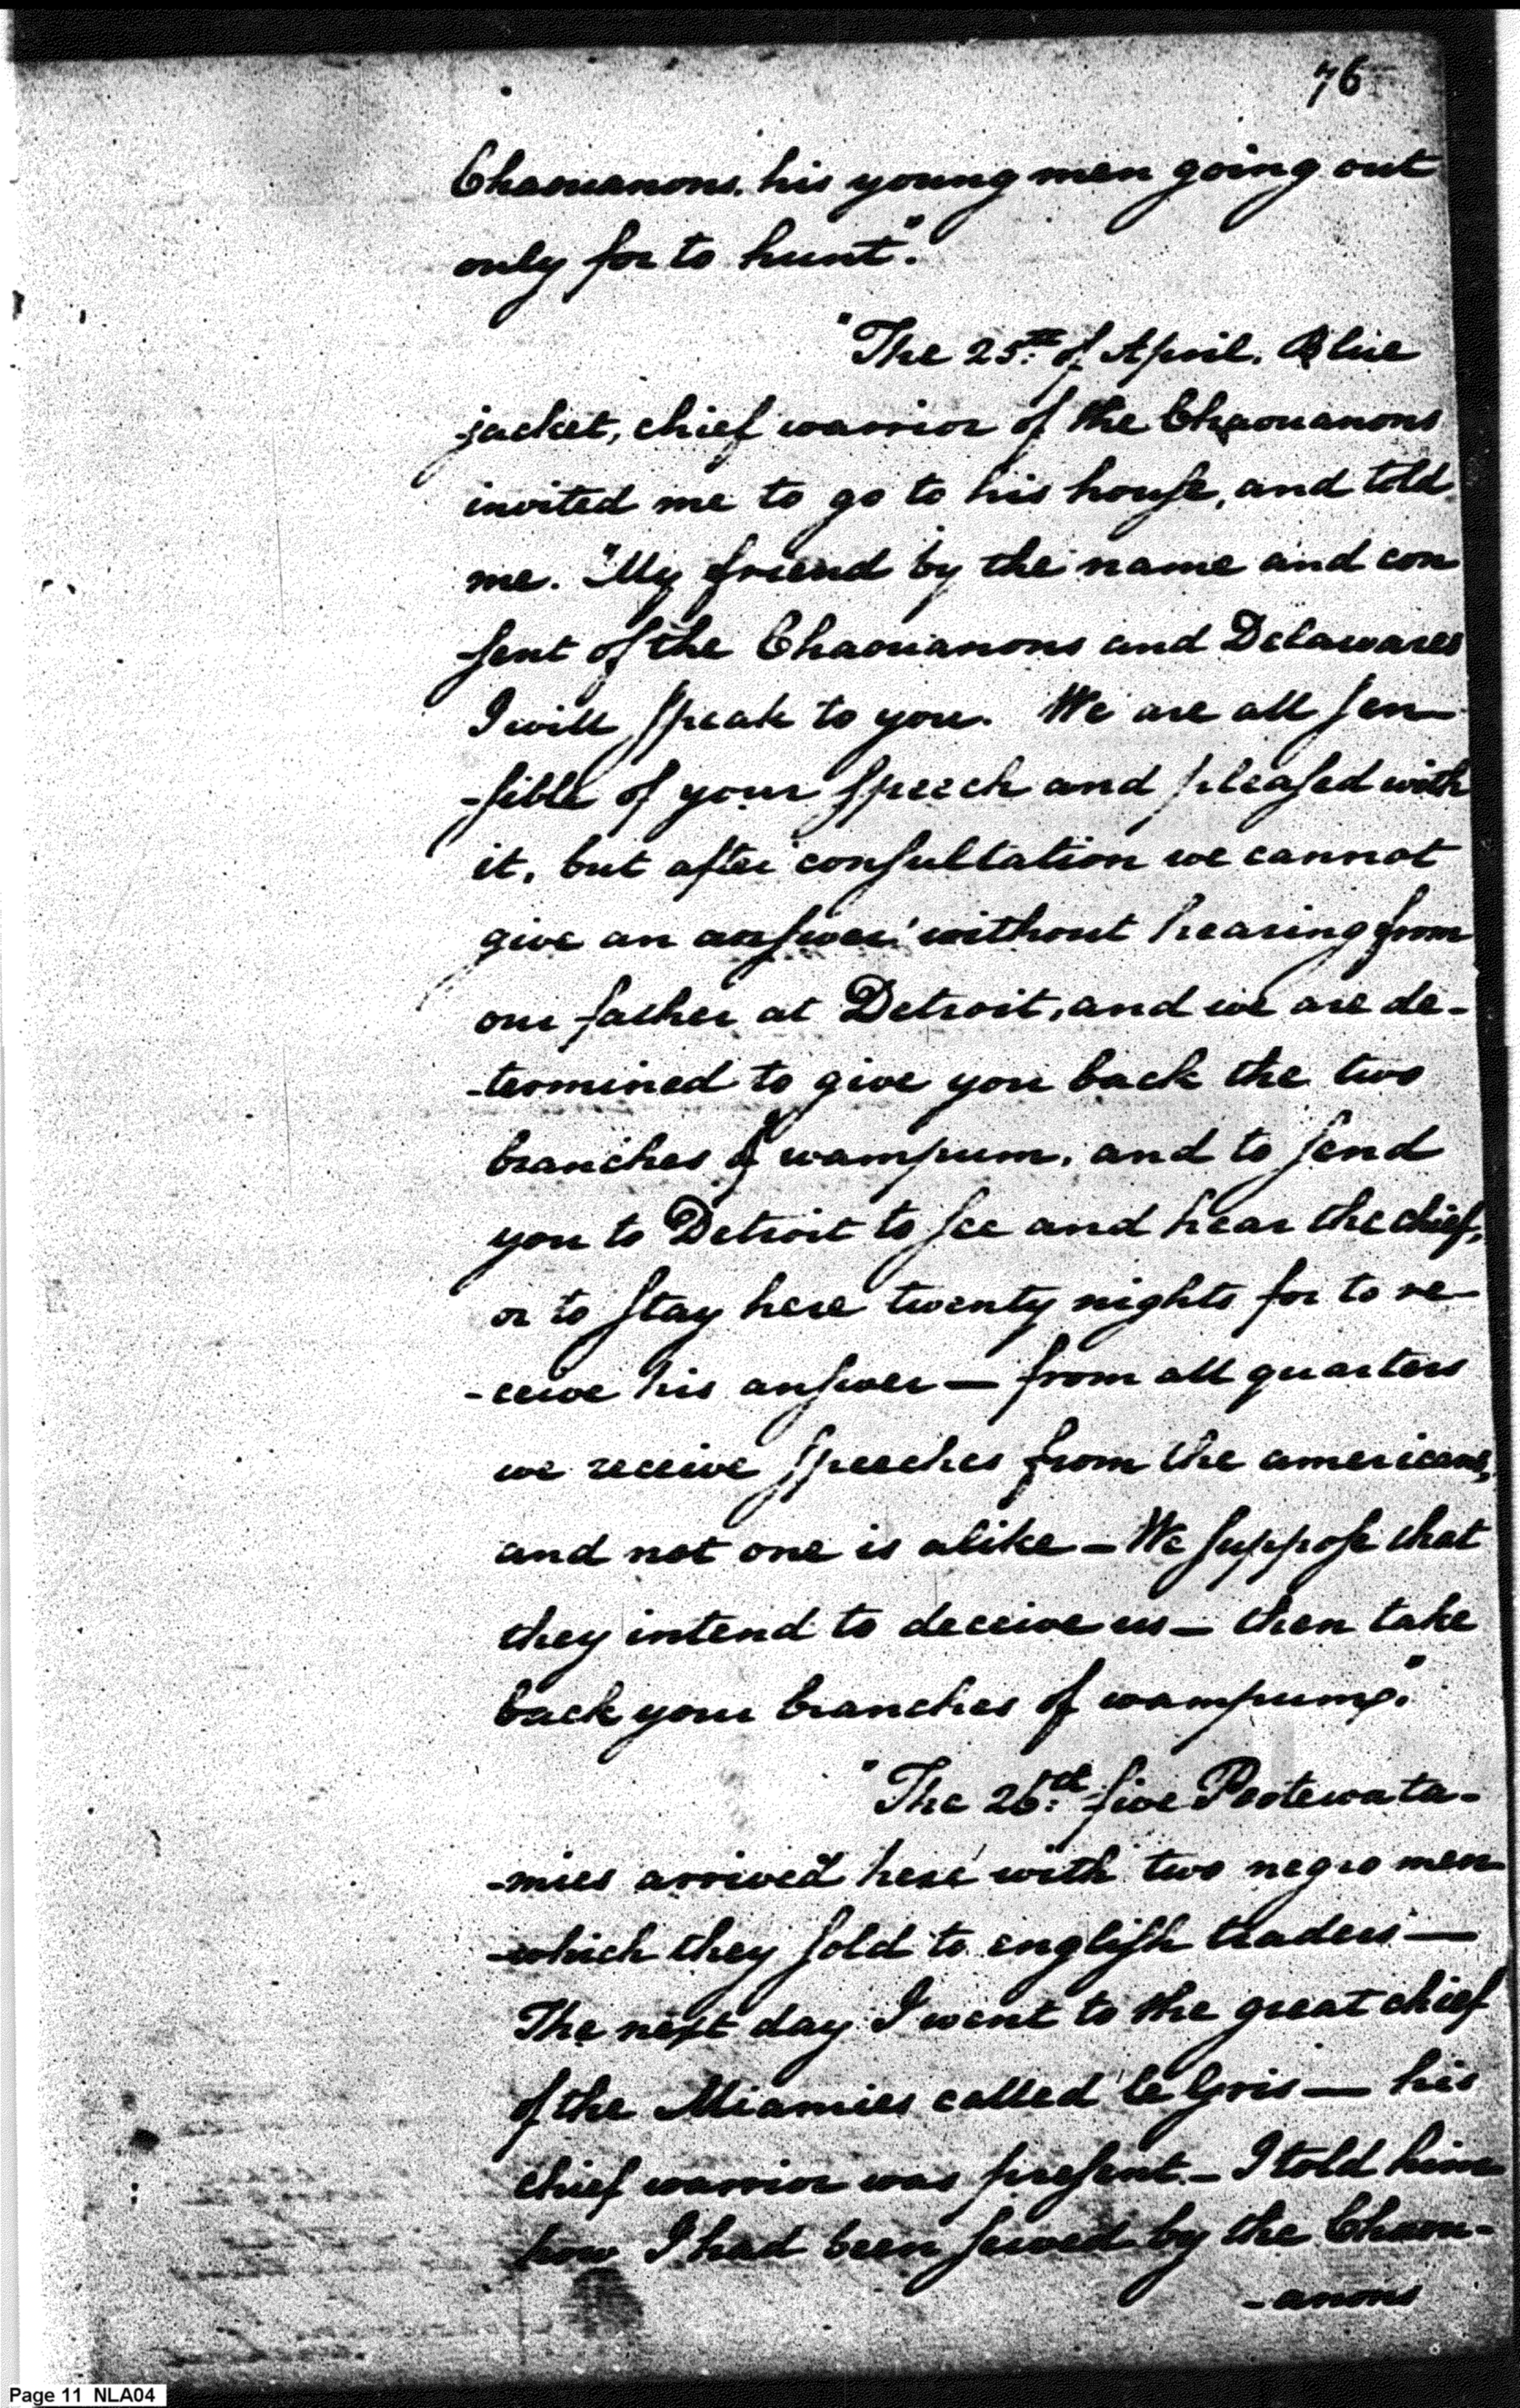 76
Chaouanons, his young men going out
only for to hunt".
"The 25th of April. Blue
jacket, chief warrior of the Chaouanons
invited me to go to his house, and told
me. "My friend by the name and con
-sent of the Chaouanons and Delawares
I will speak to you. We are all sen-
-sible of your speech and pleased with
it, but after consultation we cannot
give an answer without hearing from
our father at Detroit, and we are de-
-termined to give you back the two
branches of wampum, and to send
you to Detroit to see and hear the chief,
or to stay here twenty nights for to re-
-ceive his answer — from all quarters
we receive speeches from the americans,
and not one is alike — We suppose that
they intend to deceive us — then take
back your branches of wampum".
"The 26th five Pootewata-
-mies arrived here with two negro men
-which they sold to english traders —
The next day I went to the great chief
of the Miamies called le Gris — his
chief warrior was present — I told him
how I had been served by the Chaou-
-anons
Page 11 NLA04